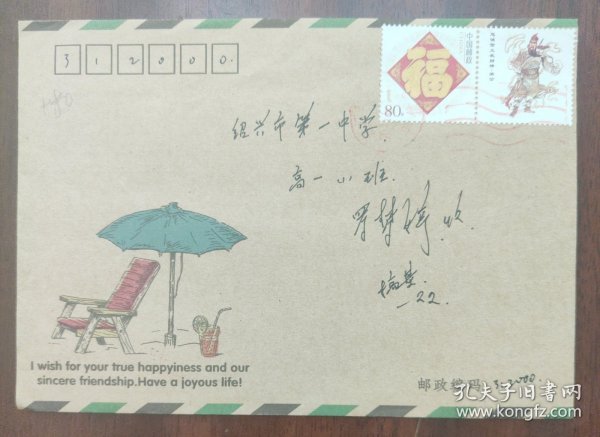 312000.
中国邮政
CHINA
福
80分
绍兴市第一中学.
高一小班.
收.
22.
I wish for your true happyiness and our
sincere friendship.Have a joyous life!
邮政编码 312000.
孔夫子旧书网
www.kongfz.com